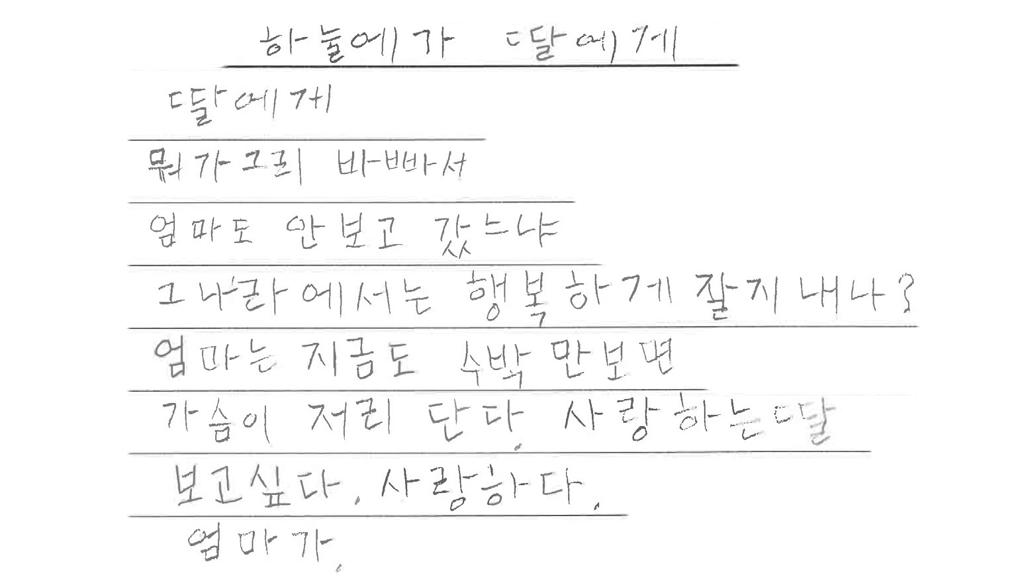 하늘에가 딸에게
딸에게
뭐가그리 바빠서
엄마도 안보고 갔느냐
그나라에서는 행복하게 잘지내나?
엄마는 지금도 수박만보면
가슴이 저리단다. 사랑하는딸
보고싶다. 사랑하다.
엄마가.